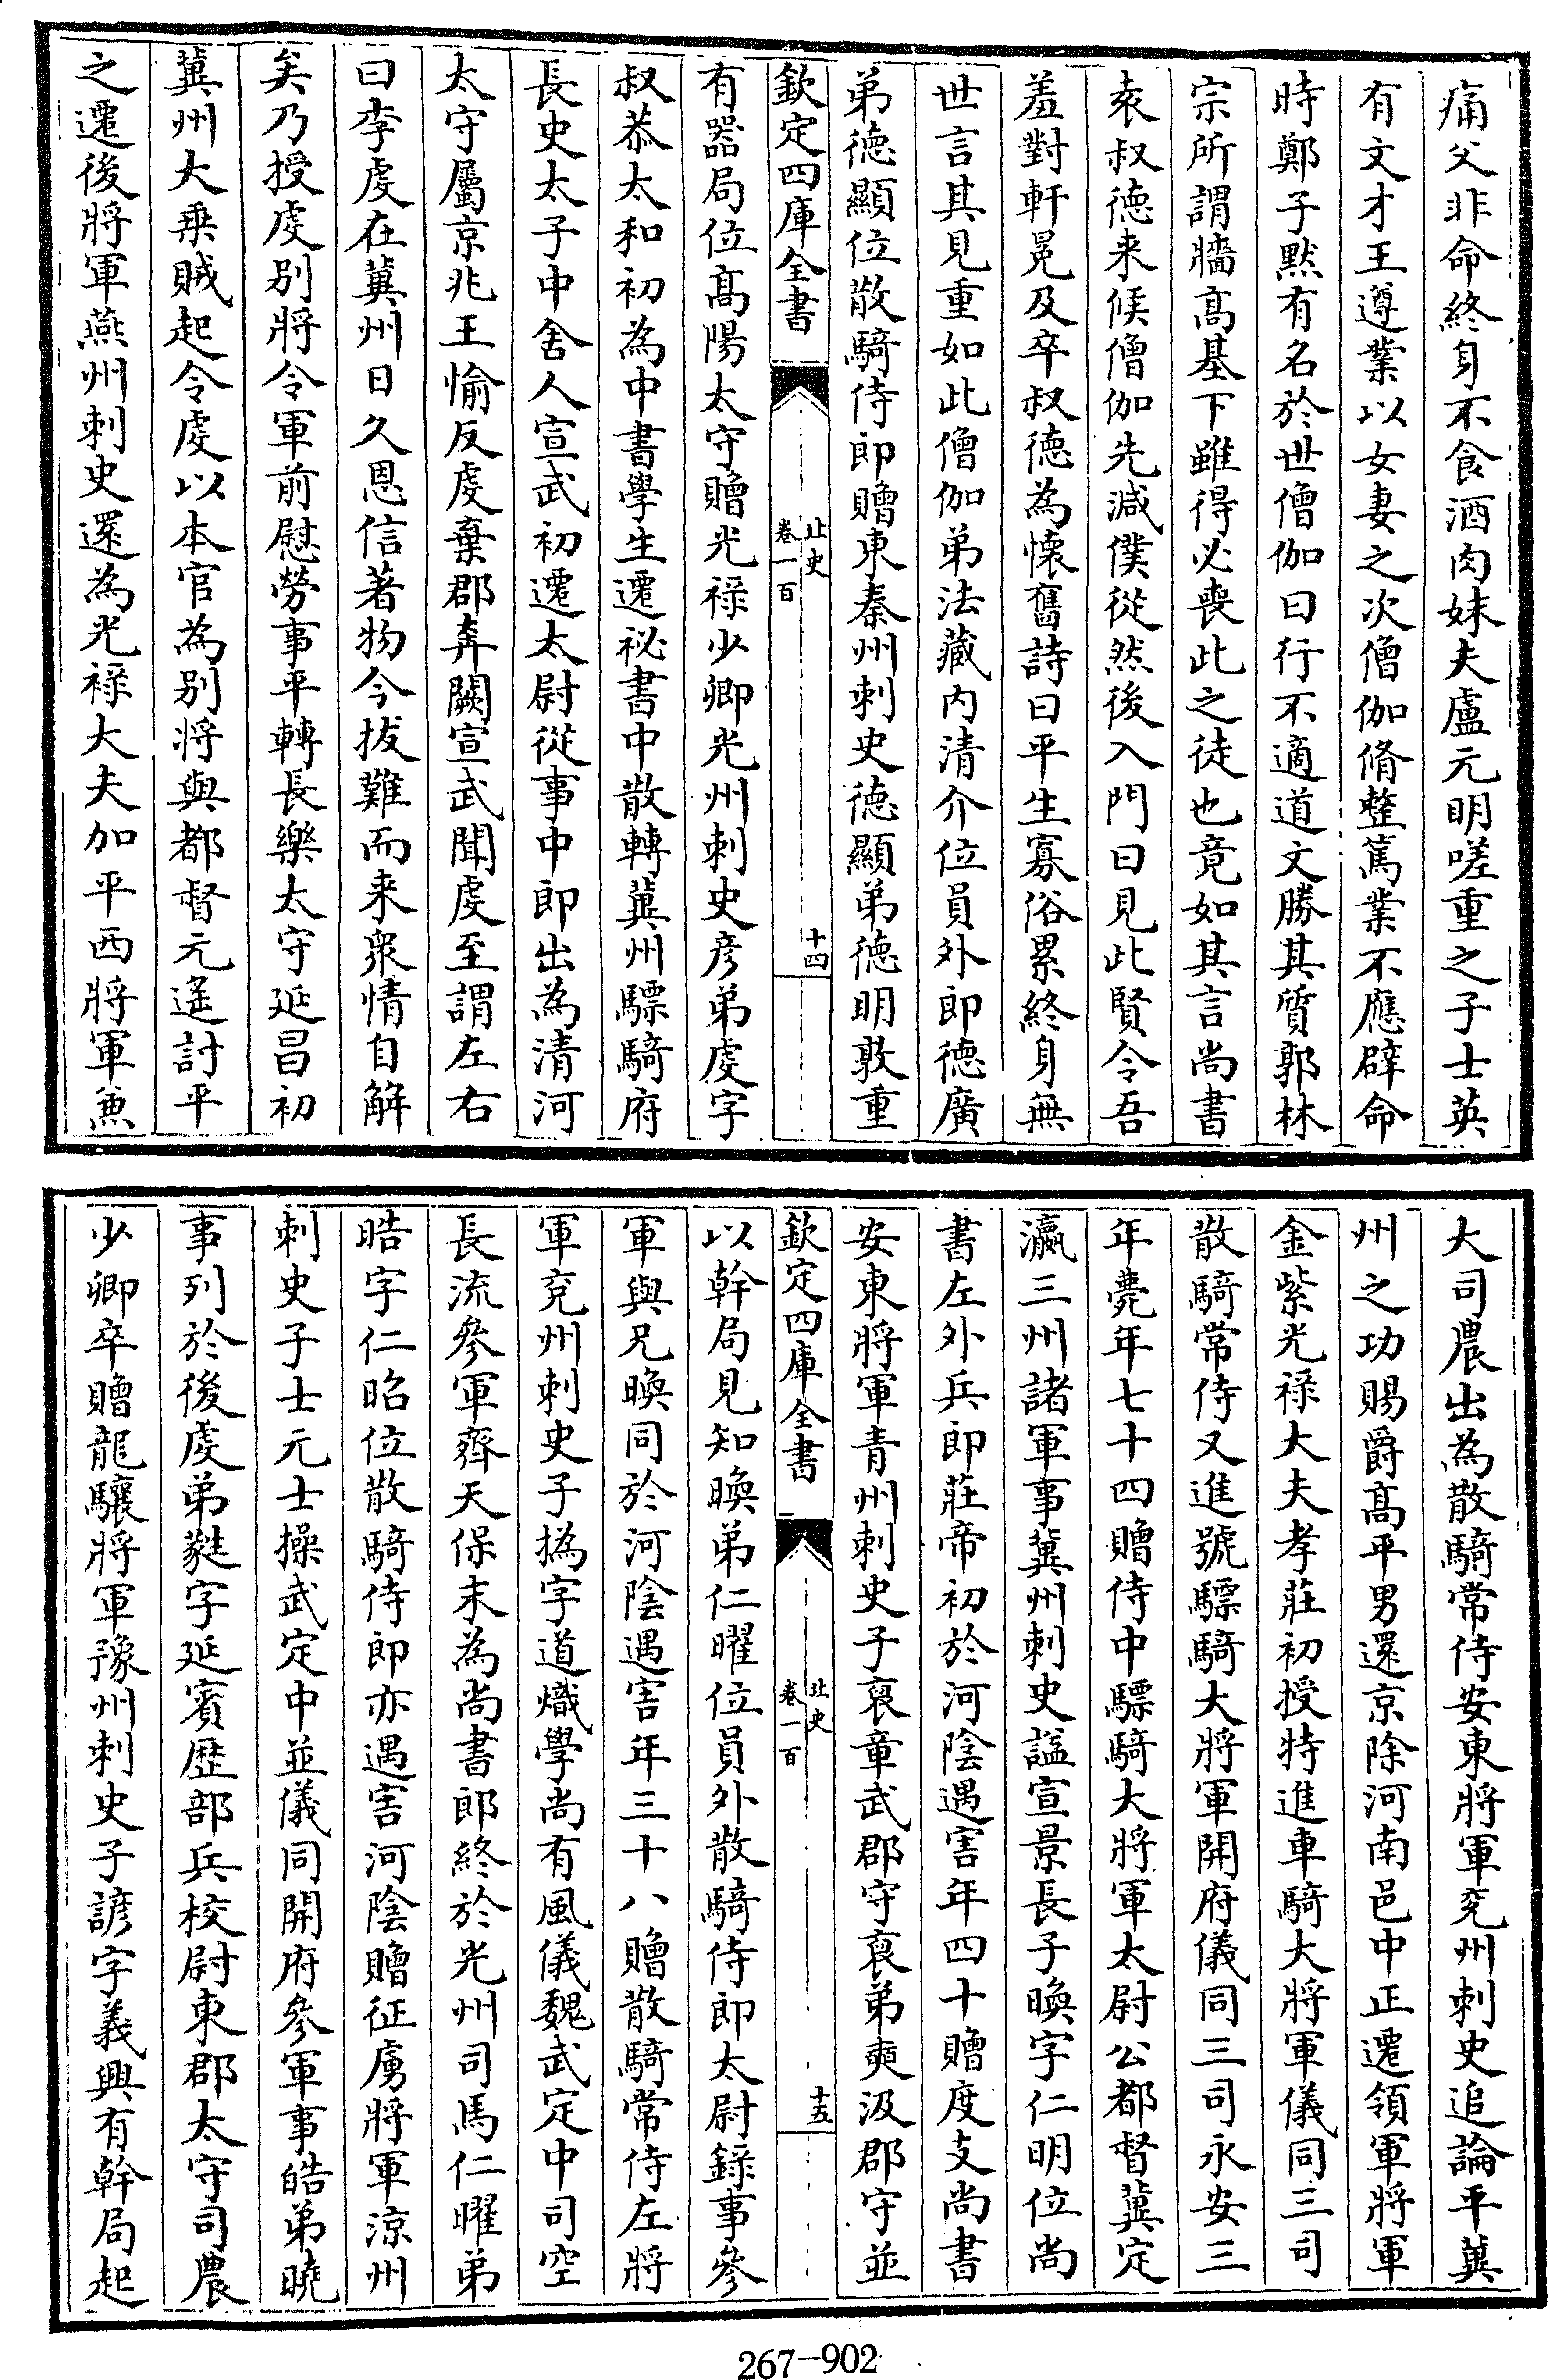 痛父非命終身不食酒肉妹夫盧元明嗟重之子士英
有文才王遵業以女妻之次僧伽脩整篤業不應辟命
時鄭子黙有名於世僧伽曰行不適道文勝其質郭林
宗所謂牆高基下雖得必喪此之徒也竟如其言尚書
袁叔徳来候僧伽先減僕從然後入門曰見此賢令吾
羞對軒冕及卒叔徳為懐舊詩曰平生寡俗累終身無
世言其見重如此僧伽弟法藏内清介位員外郎徳廣
弟徳顯位散騎侍郎贈東秦州刺史徳顯弟徳明敦重
欽定四庫全書
北史
卷一百
十四
有器局位髙陽太守贈光禄少卿光州刺史彦弟䖍字
叔恭太和初為中書學生遷祕書中散轉冀州驃騎府
長史太子中舍人宣武初遷太尉從事中郎出為清河
太守屬京兆王愉反䖍棄郡奔闕宣武聞䖍至謂左右
曰李䖍在冀州日久恩信著物今拔難而来衆情自解
矣乃授䖍别將令軍前慰勞事平轉長樂太守延昌初
冀州大乗賊起令䖍以本官為别將與都督元遥討平
之遷後將軍燕州刺史還為光禄大夫加平西將軍兼
大司農出為散騎常侍安東將軍兖州刺史追論平冀
州之功賜爵髙平男還京除河南邑中正遷領軍將軍
金紫光禄大夫孝莊初授特進車騎大將軍儀同三司
散騎常侍又進號驃騎大將軍開府儀同三司永安三
年薨年七十四贈侍中驃騎大將軍太尉公都督冀定
瀛三州諸軍事冀州刺史諡宣景長子暎字仁明位尚
書左外兵郎莊帝初於河陰遇害年四十贈度支尚書
安東將軍青州刺史子裒章武郡守裒弟奭汲郡守並
欽定四庫全書
北史
卷一百
十五
以幹局見知暎弟仁曜位員外散騎侍郎太尉錄事參
軍與兄暎同於河陰遇害年三十八贈散騎常侍左將
軍兖州刺史子撝字道熾學尚有風儀魏武定中司空
長流參軍齊天保末為尚書郎終於光州司馬仁曜弟
晧字仁昭位散騎侍郎亦遇害河陰贈征虜將軍涼州
刺史子士元士操武定中並儀同開府參軍事皓弟曉
事列於後䖍弟蕤字延賓歴部兵校尉東郡太守司農
少卿卒贈龍驤將軍豫州刺史子諺字義興有幹局起
267-902